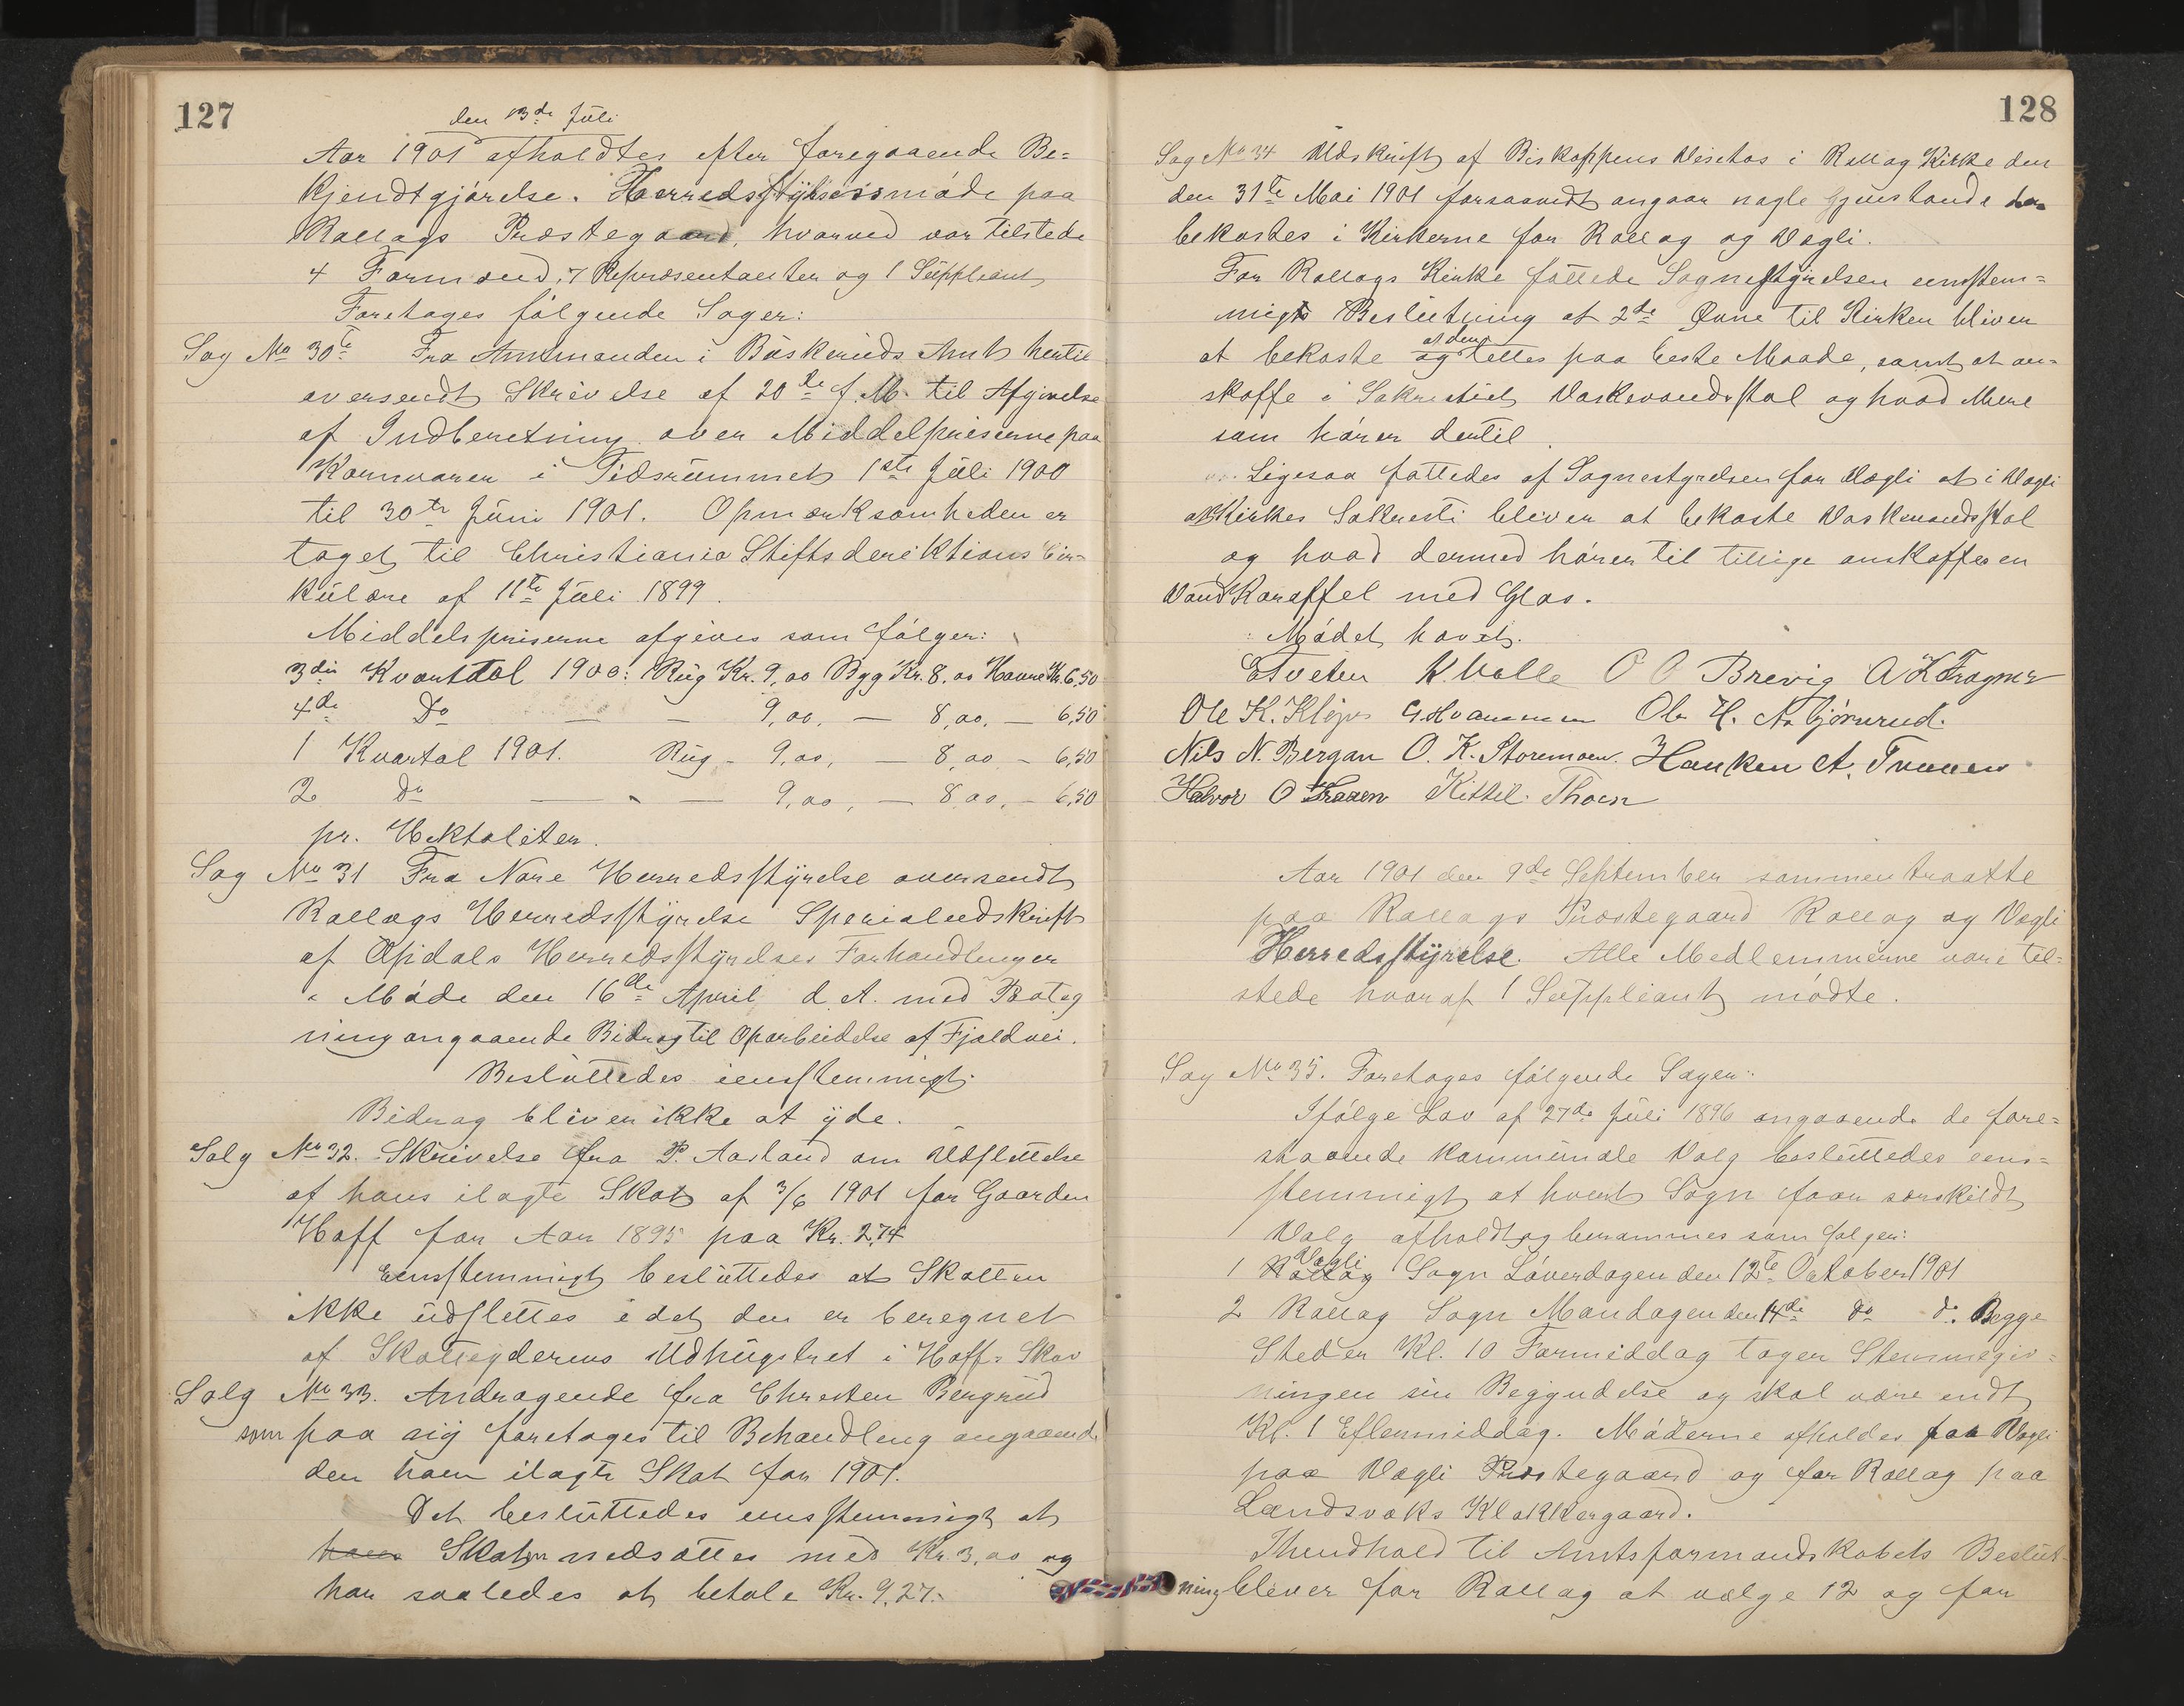 127
den 13de Juli
Aar 1901 afholdtes efter foregaaende Be=
kjendtgjørelse. Herredsstyrelsesmøde paa
Rollags Præstegaard, hvorved var tilstede
4 Formænd, 7 Repræsentanter og 1 Suppliant
Foretages følgende Sager:
Sag No 30te Fra Amtmanden i Buskeruds Amt hertil
oversendt Skrivelse af 20de f. M. til Afgivelse
af Indberetning over Middelpriserne paa
Kornvarer i Tidsrummet 1ste Juli 1900
til 30te Juni 1901. Opmærksomheden er
taget til Christiania Stiftsderektions Cir=
kulære af 11te Juli 1899.
Middelspriserne afgives som følger:
3die Kvartal 1900: Rug Kr. 9,00 Byg Kr. 8,00 Havre Kr. 6,50
4de Do — — 9,00, — 8,00, — 6,50
1 Kvartal 1901. Rug - 9,00, — 8,00 - 6,50
2 do — — 9,00, — 8,00, - 6,50
pr. Hektoliter.
Sag No 31 Fra Nore Herredsstyrelse oversendt
Rollags Herredsstyrelse Specialudskrift
af Opdals Herredsstyrelses Forhandlinger
i Møde den 16de April d. A. med Poteg
ning angaaende Bidrag til Oparbeidelse af Fjeldvei.
Besluttedes eensstemmigt:
Bidrag bliver ikke at yde.
Salg No 32. Skrivelse fra P. Aasland om Udslettelse
af hans ilagte Skat af 3/6 1901 for Gaarden
Hoff for Aar 1895 paa Kr. 2,74
Eensstemmigt besluttedes at Skatten
ikke udslettes idet den er beregnet
af Skatteyderens Udhugstret i Hoff=Skov
Salg No 33. Andragende fra Christen Bergrud
som paa sig foretages til Behandling angaaende
den ham ilagte Skat for 1901.
Det besluttedes eensstemmigt at
hans Skatn nedsættes med Kr. 3,00 og
har saaledes at betale Kr. 9,27.
128
Sag No 34 Udskrift af Biskoppens Visitas i Rollag Kirke den
den 31te Mai 1901 forsaavidt angaar nogle Gjenstande
bekostes i Kirkerne for Rollag og Vegli.
For Rollags Kirke fattede Sognestyrelsen eensstem=
migt Beslutning at 2de Ovne til Kirken bliver
at bekoste og at den tettes paa beste Maade, samt at an=
skaffe i Sakristiet Vaskevandsstol og hvad Mere
som hører dertil.
Ligesaa fattedes af Sognestyrelsen for Vegli at i Vegli
Kirkes Sakresti bliver at bekoste Vaskevandsstol
og hvad dermed hører til tillige anskaffes en
Vandkaraffel med Glas.
Mødet hævet.
E Tveten K. Valle O O Brevig A K Fragner
Ole K. Kløpr G Hvammen Ole H. Asbjørnrud.
Nils N. Bergan O. K. Storemoen. Haaken A. Traaen
Halvor O Traaen Kittel Thoen
Aar 1901 den 9de September sammentraatte
paa Rollags Præstegaard Rollag og Vegli
Herredsstyrelse. Alle Medlemmerne vare til=
stede hvoraf 1 Suppliant mødte.
Sag No 35. Foretages følgende Sager:
Ifølge Lov af 27de Juli 1896 angaaende de fore=
staaende kommunale Valg besluttedes eens=
stemmigt at hvert Sogn faar særskildt
Valg afholdt og berammes som følger:
1 Rollag Vegli Sogn Løverdagen den 12te October 1901
2 Rollag Sogn Mandagen den 14de do do. Begge
Steder Kl. 10 Formiddag tager Stemmegiv=
ningen sin Begyndelse og skal være endt
Kl. 1 Eftermiddag. Møderne afholdes for Vegli
paa Vegli Præstegaard og for Rollag paa
Landsværks Klokkergaard.
I henhold til Amtsformandskabets Beslut=
ning bliver for Rollag at vælge 12 og for